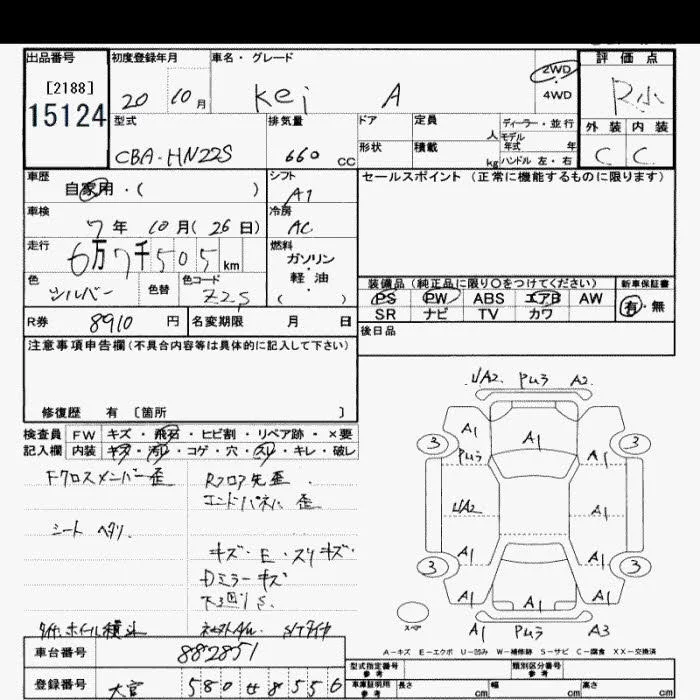 出品番号
[2188]
15124
初度登録年月
20 10月
車名・グレード
Kei A
2WD
・
4WD
評価点
R小
外装 内装
C C
型式
CBA-HN22S
排気量
660 cc
ドア
形状
定員
人
積載
kg
ディーラー・並行
モデル
年式 年
ハンドル 左・右
車歴
自家用・( )
シフト
A1
車検
7年 10月(26日)
冷房
AC
走行
6万7千505km
燃料
ガソリン
・
軽・油
( )
色
シルバー
色替
色コード
Z2S
R券 8910 円
名変期限 月 日
セールスポイント (正常に機能するものに限ります)
装備品(純正品に限り○をつけてください)
PS PW ABS エアB AW
SR ナビ TV カワ
新車保証書
有・無
後日品
注意事項申告欄(不具合内容等は具体的に記入して下さい)
修復歴 有 [箇所 ]
検査員
記入欄
FW キズ・飛石・ヒビ割・リペア跡・×要
内装 キズ・汚レ・コゲ・穴・スレ・キレ・破レ
Fクロスメンバー歪
Rフロア先歪.
エンドパネル歪
シートヘタリ.
キズ・E・スリキズ
Dミラーキズ
下廻りS.
車台番号 882851
登録番号 大宮 580 せ 8556
UA2. Pムラ A2.
3
A1
Pムラ
A1
A1
3
UA2
A1
A1
3
A1
3
A1
A1
A1
スペア
A1
Pムラ
A3
A-キズ E-エクボ U-凹み W-補修跡 S-サビ C-腐食 XX-交換済
型式指定番号
参考
類別区分番号
参考
車庫証明用
参考
長さ cm
幅 cm
高さ cm